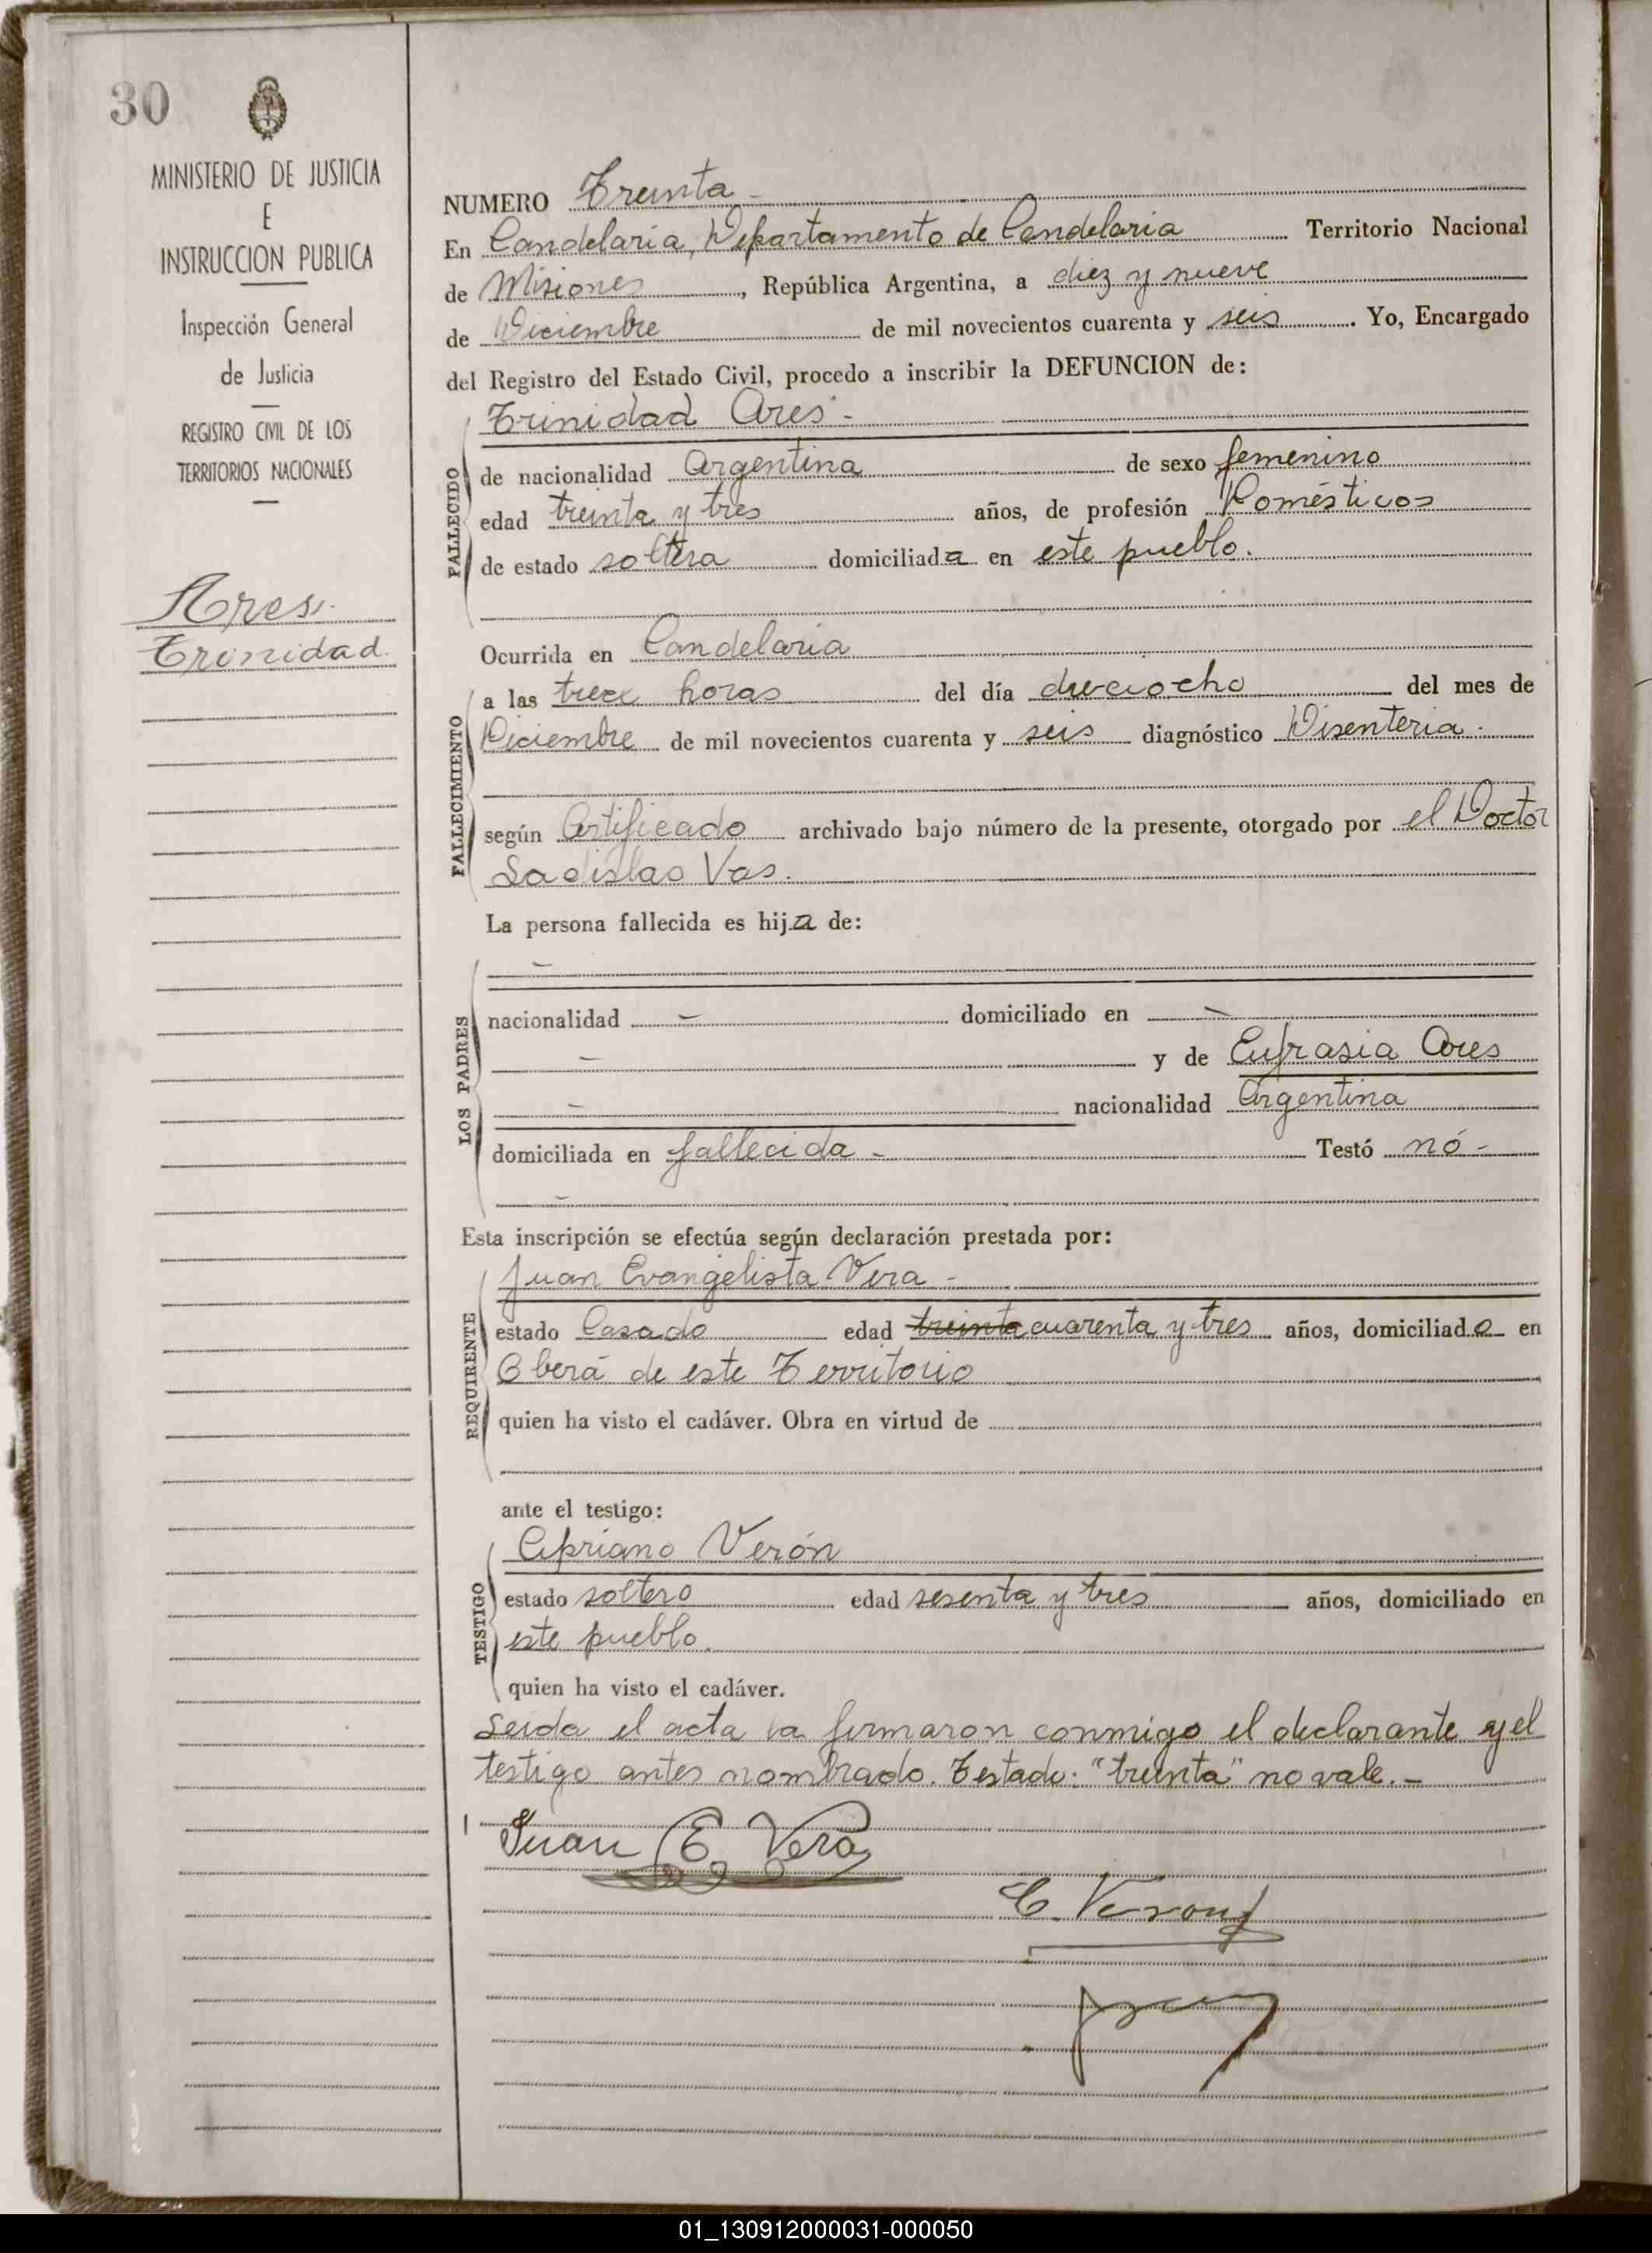 30
MINISTERIO DE JUSTICIA
E
INSTRUCCION PUBLICA
Inspección General
de Justicia
REGISTRO CIVIL DE LOS
TERRITORIOS NACIONALES
Ares.
Trinidad.
NUMERO Treinta -
En Candelaria, Departamento de Candelaria Territorio Nacional
de Misiones, República Argentina, a diez y nueve
de Diciembre de mil novecientos cuarenta y seis. Yo, Encargado
del Registro del Estado Civil, procedo a inscribir la DEFUNCION de:
FALLECIDO
Trinidad Ares -
de nacionalidad Argentina de sexo femenino
edad treinta y tres años, de profesión Domésticos
de estado soltera domiciliada en este pueblo.
FALLECIMIENTO
Ocurrida en Candelaria
a las trece horas del día dieciocho del mes de
Diciembre de mil novecientos cuarenta y seis diagnóstico Disenteria.
según Certificado archivado bajo número de la presente, otorgado por el Doctor
Ladislao Vas.
La persona fallecida es hija de:
LOS PADRES
-
nacionalidad - domiciliado en -
- y de Eufrasia Ares
- nacionalidad Argentina
domiciliada en fallecida - Testó nó -
-
Esta inscripción se efectúa según declaración prestada por:
REQUIRENTE
Juan Evangelista Vera -
estado Casado edad treinta cuarenta y tres años, domiciliado en
Oberá de este Territorio
quien ha visto el cadáver. Obra en virtud de
ante el testigo:
TESTIGO
Cipriano Verón
estado soltero edad sesenta y tres años, domiciliado en
este pueblo.
quien ha visto el cadáver.
Leida el acta la firmaron conmigo el declarante y el
testigo antes nombrado. Testado: "treinta" no vale. -
Juan E. Vera
C. Veron
01_130912000031-000050